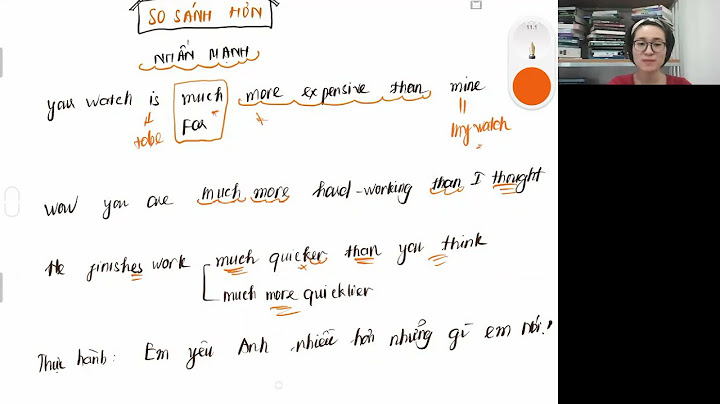 SO SÁNH HƠN
NHẤN MẠNH
you watch is much more expensive than mine
Far
to be
my watch
wow you are much more hard-working than I thought
He finishes work much quicker than you think
much more quicklier
Thực hành: Em yêu Anh nhiều hơn những gì em nói!